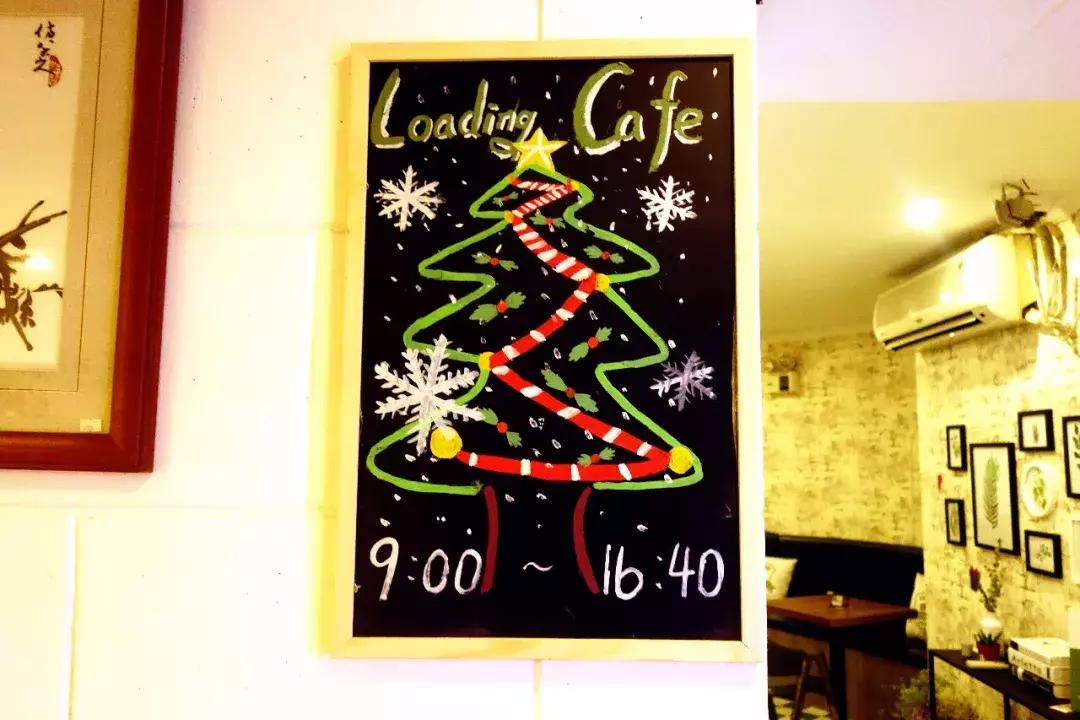 Loading Cafe
9:00 ~ 16:40